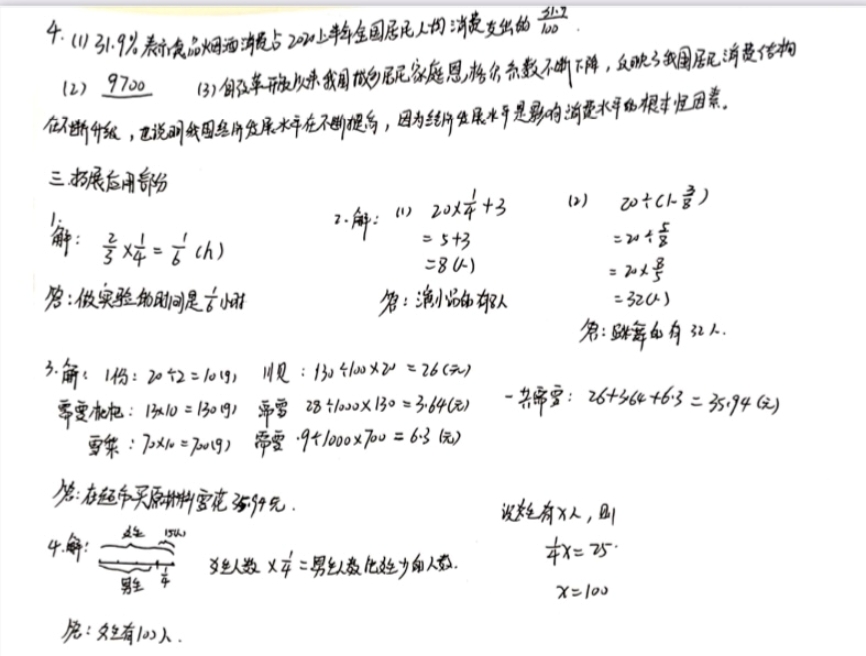 4. (1) 31.9%表示食品烟酒消费占2020上半年全国居民人均消费支出的 31.9/100 .
(2) 9700 (3) 自改革开放以来我国城乡居民家庭恩格尔系数不断下降，反映了我国居民消费结构
在不断升级，也说明我国经济发展水平在不断提高，因为经济发展水平是影响消费水平的根本性因素。
三.拓展应用部分
1.
解： 2/3 × 1/4 = 1/6 (h)
答：做实验的时间是 1/6 小时
2.解： (1) 20×1/4+3
=5+3
=8(人)
答：演小品的有8人
(2) 20÷(1-3/8)
=20÷5/8
=20×8/5
=32(人)
答：跳舞的有32人.
3.解： 1份：20÷2=10(g) 川贝：130÷100×20=26(元)
需要枇杷：13×10=130(g) 需要 28÷1000×130=3.64(元) 一共需要：26+3.64+6.3=35.94(元)
雪梨：70×10=700(g) 需要 9÷1000×700=6.3(元)
答：在超市买原材料需花35.94元.
4.解： 女生
男生 1/4
女生人数×1/4=男生人数比女生少的人数.
设女生有x人，则
1/4x=25.
x=100
答：女生有100人.